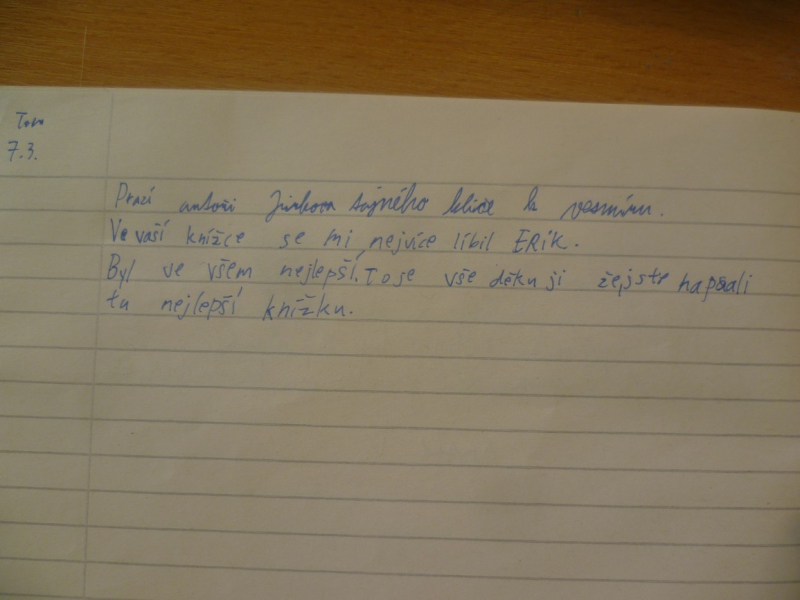 Tom
7.3.
Prací autoři Jirkova tajného klíče k vesmíru.
Ve vaší knížce se mi nejvíce líbil ERik.
Byl ve všem nejlepší. To je vše děku ji že jste napsali
tu nejlepší knížku.